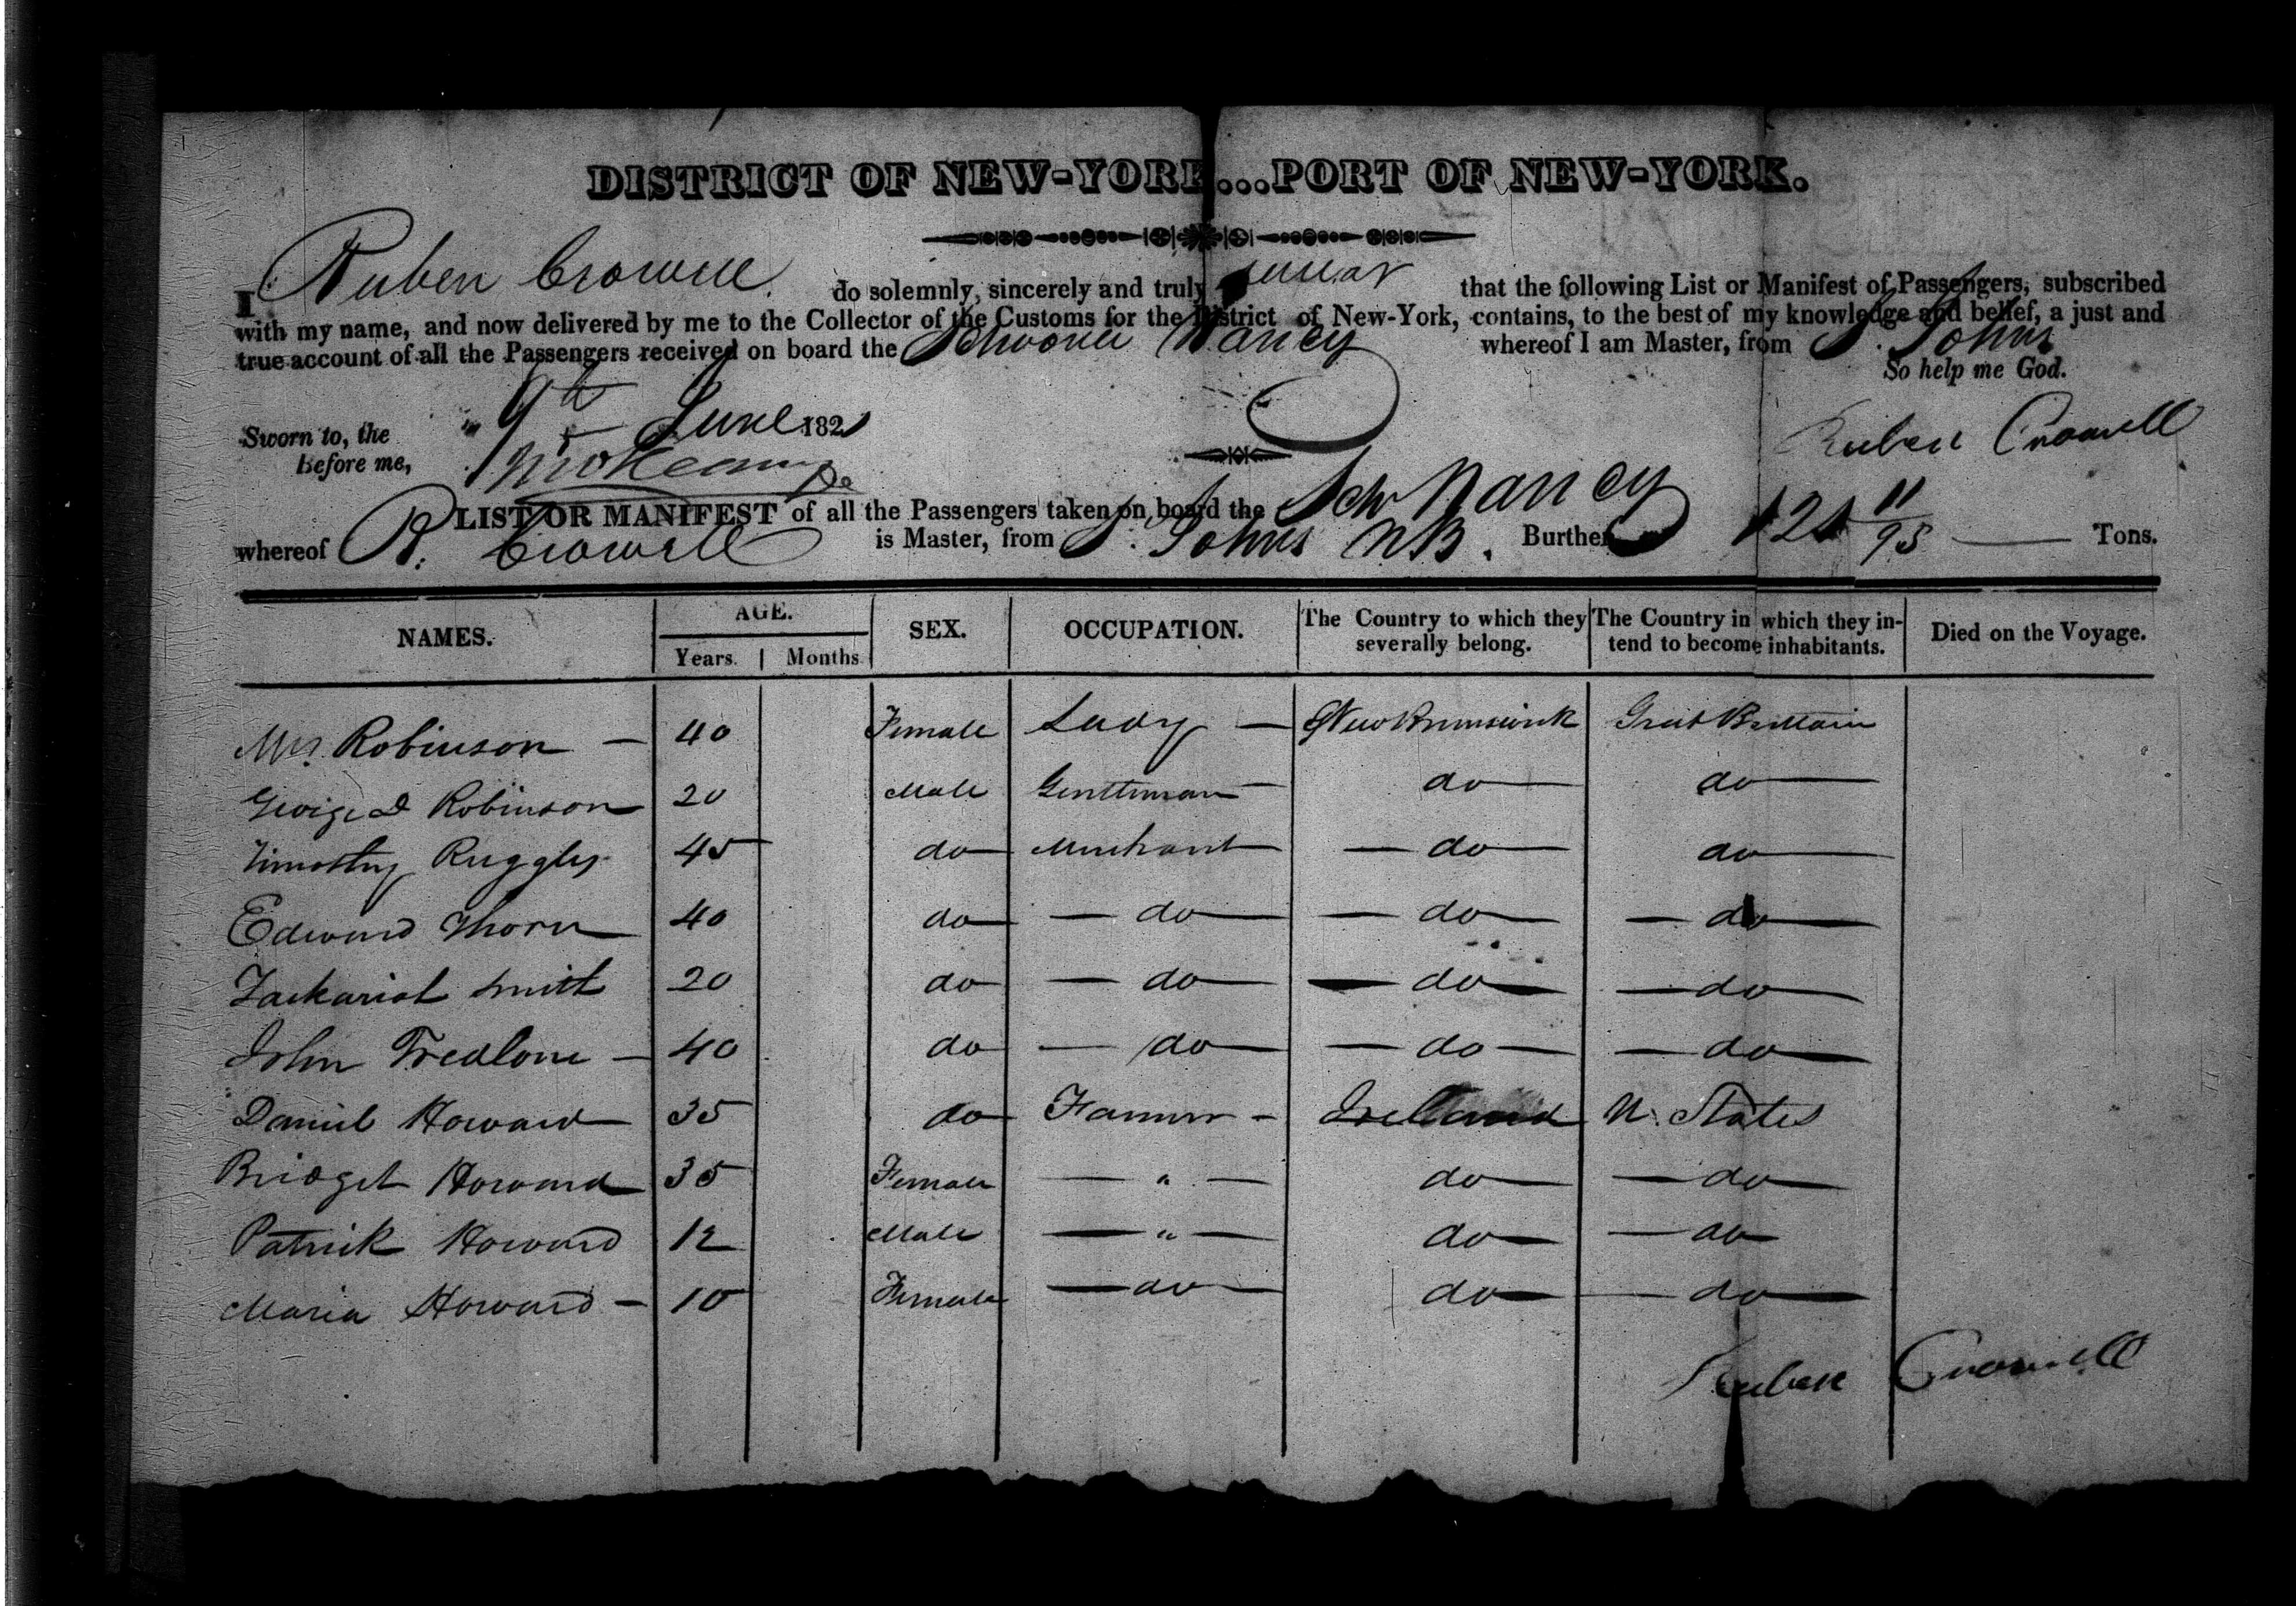 DISTRICT OF NEW-YORK...PORT OF NEW-YORK.
I Ruben Crowell do solemnly, sincerely and truly swear that the following List or Manifest of Passengers, subscribed
with my name, and now delivered by me to the Collector of the Customs for the District of New-York, contains, to the best of my knowledge and belief, a just and
true account of all the Passengers received on board the Schooner Nancy whereof I am Master, from St. Johns
So help me God.
Sworn to, the 9th June 182
Before me,
Ruben Crowell
LIST OR MANIFEST of all the Passengers taken on board the Schr Nancy
whereof R. Crowell is Master, from St. Johns NB. Burthen 121 11/95 Tons.
NAMES. AGE. SEX. OCCUPATION. The Country to which they severally belong. The Country in which they intend to become inhabitants. Died on the Voyage.
Years. Months.
Mrs. Robinson 40 Female Lady New Brunswick Great Brittain
George D Robinson 20 Male Gentleman do do
Timothy Ruggles 45 do Merchant do do
Edward Thorn 40 do do do do
Zackariah Smith 20 do do do do
John 40 do do do do
Daniel Howard 35 do Farmer Ireland U. States
Bridget Howard 35 Female " do do
Patrick Howard 12 Male " do do
Maria Howard 10 Female do do do
Ruben Crowell